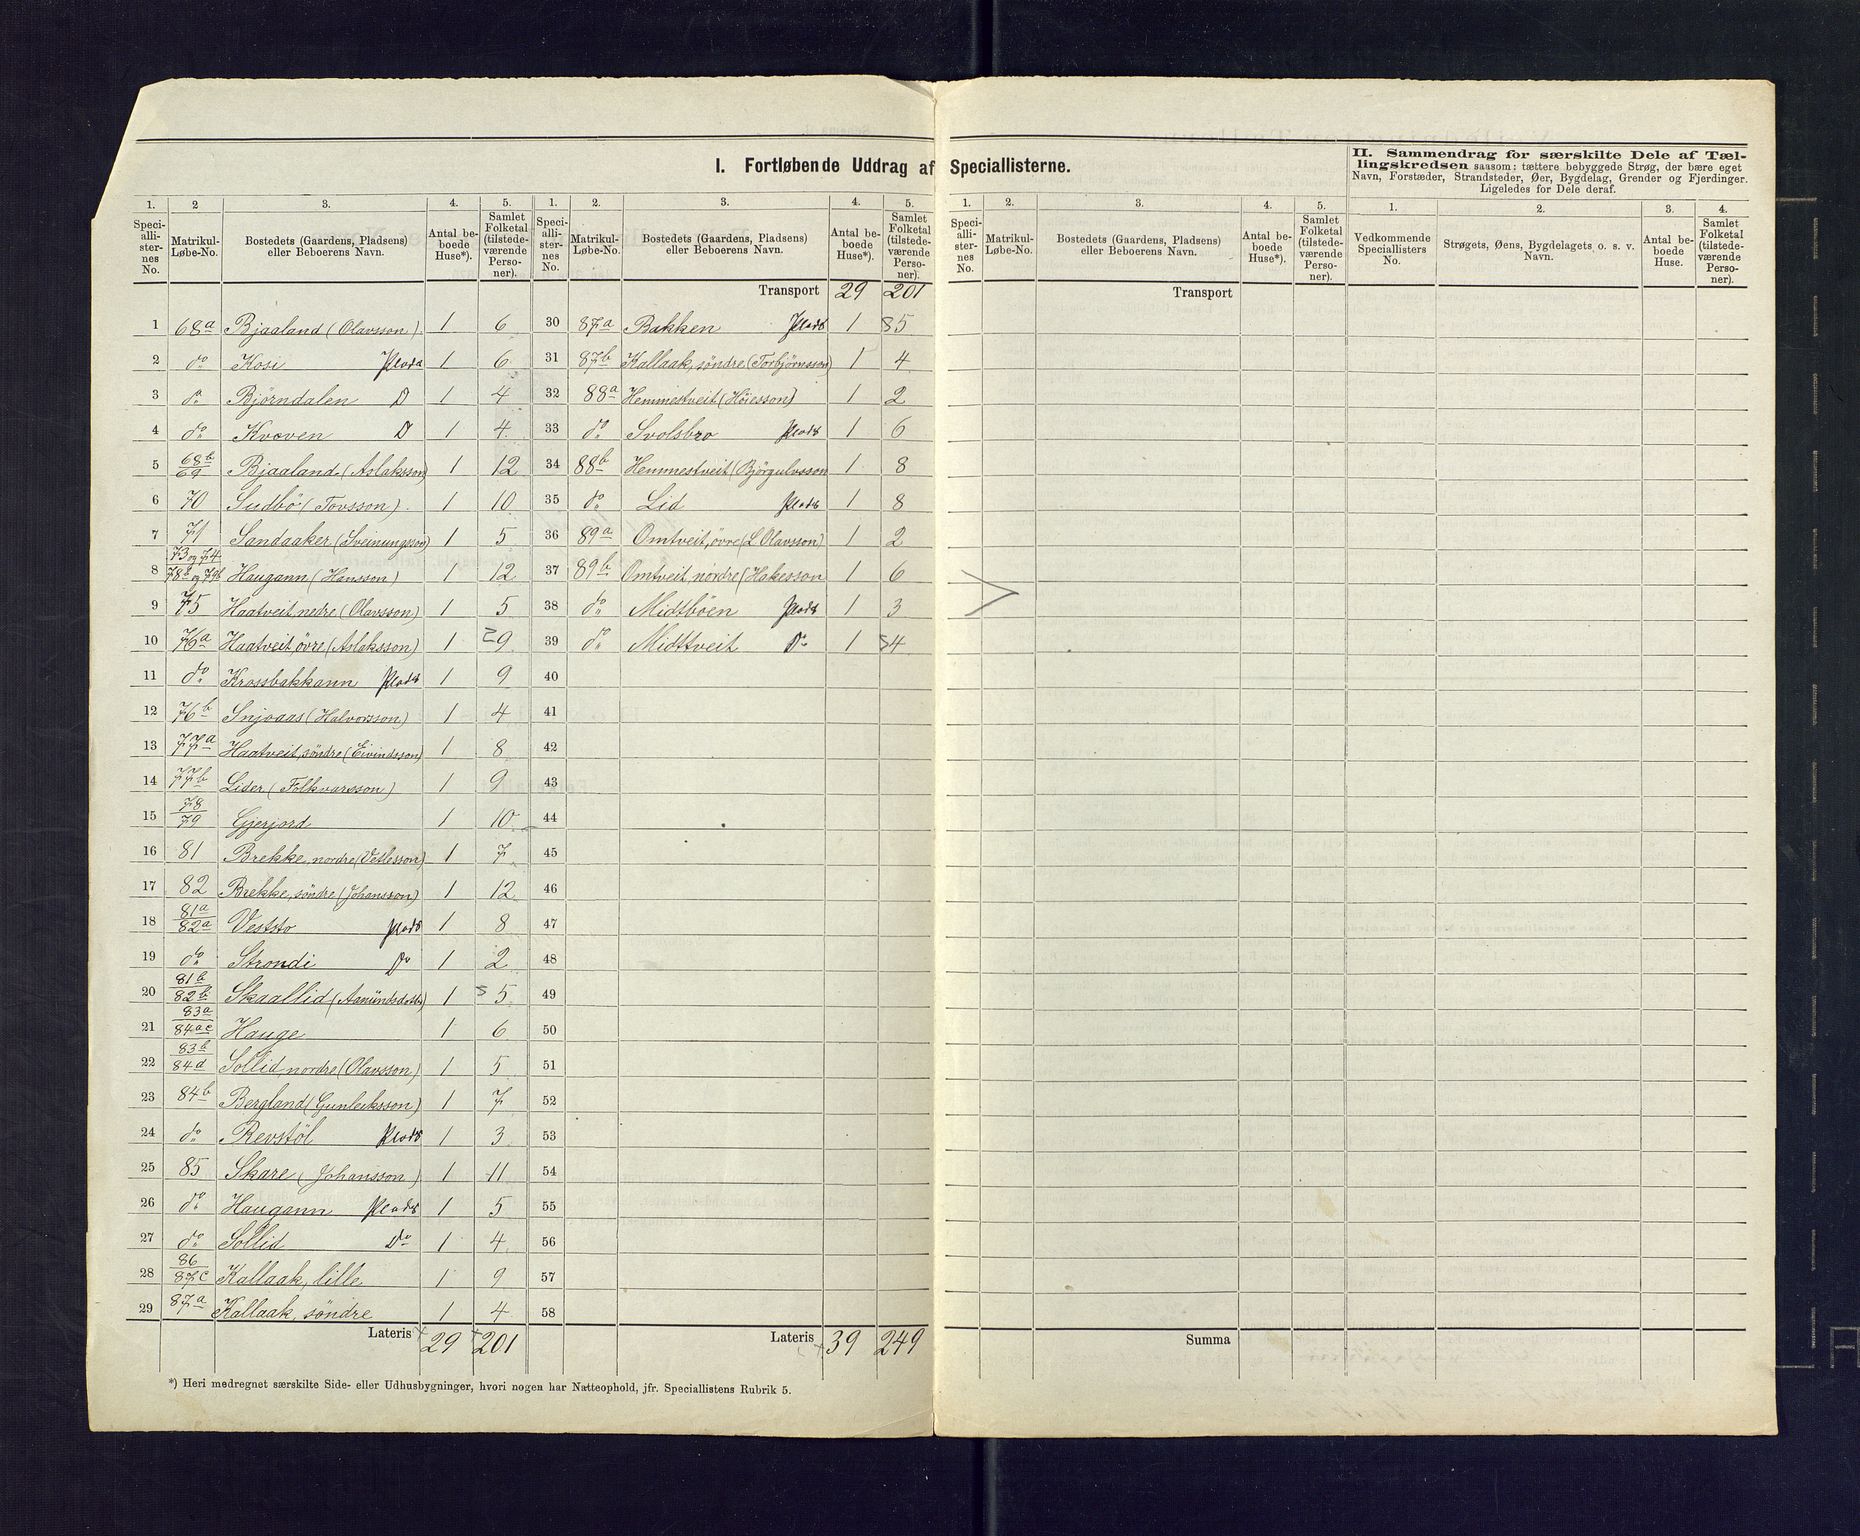 I. Fortløbende Uddrag af Speciallisterne.
II. Sammendrag for særskilte Dele af Tæl-
lingskredsen saasom: tættere bebyggede Strøg, der bære eget
Navn, Forstæder, Strandsteder, Øer, Bygdelag, Grender og Fjerdinger.
Ligeledes for Dele deraf.
1. 2 3. 4. 5. 1. 2. 3. 4. 5. 1. 2. 3. 4. 5. 1. 2. 3. 4.
Speci-alli-ster-nes No. Matrikul-Løbe-No. Bostedets (Gaardens, Pladsen) eller Beboerens Navn. Antal be-boede Huse*). Samlet Folketal (tilstede-værende Perso-ner).
Speci-alli-ster-nes No. Matrikul-Løbe-No. Bostedets (Gaardens, Pladsen) eller Beboerens Navn. Antal be-boede Huse*). Samlet Folketal (tilstede-værende Perso-ner).
Speci-alli-ster-nes No. Matrikul-Løbe-No. Bostedets (Gaardens, Pladsen) eller Beboerens Navn. Antal be-boede Huse*). Samlet Folketal (tilstede-værende Perso-ner).
Vedkommende Speciallisters No. Strøgets, Øens, Bygdelagets o. s. v. Navn. Antal be-boede Huse. Samlet Folketal (tilstede-værende Perso-ner).
1 68a Bjaaland (Olavsson). 1 6
2 do Kosi Plads 1 6
3 do Bjørndalen D 1 4
4 do Kvæven D 1 4
5 68b/69 Bjaaland (Aslaksson) 1 12
6 70 Sudbö (Tovsson). 1 10
7 71 Sandaaker (Sveinungson) 1 5
8 73 og 74 78b og 79b Haugann (Hansson) 1 12
9 75 Haatveit, nedre (Olavsson) 1 5
10 76a Haatveit, övre (Aslaksson) 1 9
11 do Krossbakkann Plads 1 9
12 76b Snjoaas (Halvorsson) 1 4
13 77a Haatveit, söndre (Eivindsson) 1 8
14 77b Lider (Folkvarsson) 1 9
15 78/79 Gjerjord 1 10
16 81 Brekke, nordre (Vetlesson) 1 7
17 82 Brekke, söndre (Johansson) 1 12
18 81a/82a Veststo Plads 1 8
19 do Strondi Do 1 2
20 81b/82b Skaallid (Aamundsdotter) 1 5
21 83a/84ac Hauge 1 6
22 83b/84d Sollid, nordre (Olavsson) 1 5
23 84b Bergland (Gunleiksson) 1 7
24 do Revstöl Plads 1 3
25 85 Skare (Johansson) 1 11
26 do Haugann Plads 1 5
27 do Sollid Do 1 4
28 86/87c Kallaak, lille 1 9
29 87a Kallaak, söndre 1 4
Lateris 29 201
Transport 29 201
30 87a Bakken Plads 1 5
31 87b Kallaak, söndre (Torbjörnsson) 1 4
32 88a Hemmestveit (Höiesson) 1 2
33 do Svolsbro Plads 1 6
34 88b Hemmestveit (Björgulvsson 1 8
35 do Lid Plads 1 8
36 89a Omtveit, övre (L Olavsson) 1 2
37 89b Omtveit, nordre (Hakesson 1 6
38 do Midtböen Plads 1 3
39 do Midttveit Do 1 4
40
41
42
43
44
45
46
47
48
49
50
51
52
53
54
55
56
57
58
Lateris 39 249
Transport
Summa
*) Heri medregnet særskilte Side- eller Udhusbygninger, hvori nogen har Natteophold, jfr. Speciallistens Rubrik 5.